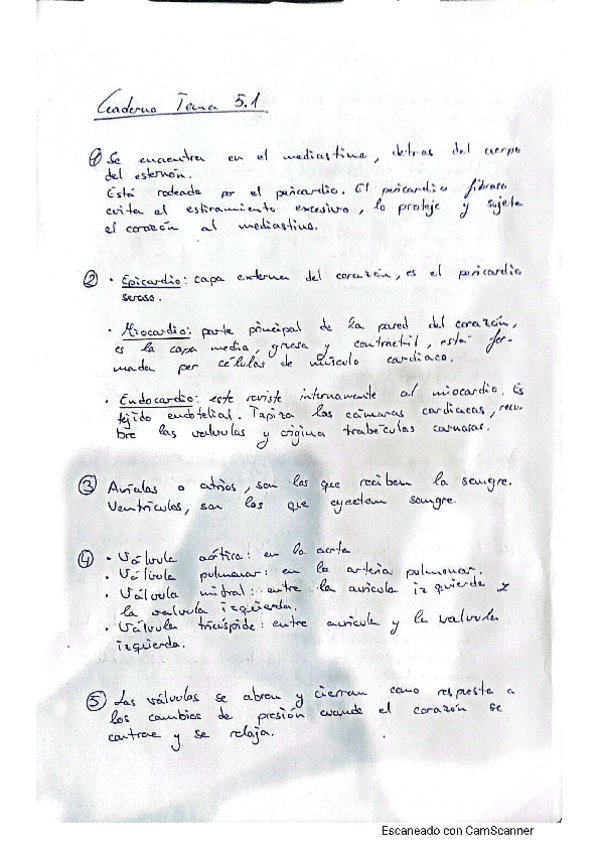 Cuaderno Tema 5.1
① Se encuentra en el mediastino, detras del cuerpo
del esternón.
Está rodeado por el pericardio. El pericardio fibroso
evita al estiramiento excesivo, lo proteje y sujeta
el corazón al mediastino.
② · Epicardio: capa externa del corazón, es el pericardio
seroso.
· Miocardio: parte principal de la pared del corazón,
es la capa media, gruesa y contráctil, está for-
mada por células de músculo cardiaco.
· Endocardio: este reviste internamente al miocardio. Es
tejido endotelial. Tapiza las cámaras cardiacas, recu-
bre las valvulas y origina trabéculas carnosas.
③ Aurículas o atrios, son las que reciben la sangre.
Ventrículos, son los que eyectam sangre.
④ · Válvula aórtica: en la aorta
· Válvula pulmonar: en la arteria pulmonar.
· Válvula mitral: entre la auricula izquierda y
la valvula izquierda.
· Válvula tricúspide: entre auricula y la valvula
izquierda.
⑤ Las válvulas se abren y cierran como respuesta a
los cambios de presión cuando el corazón se
contrae y se relaja.
Escaneado con CamScanner